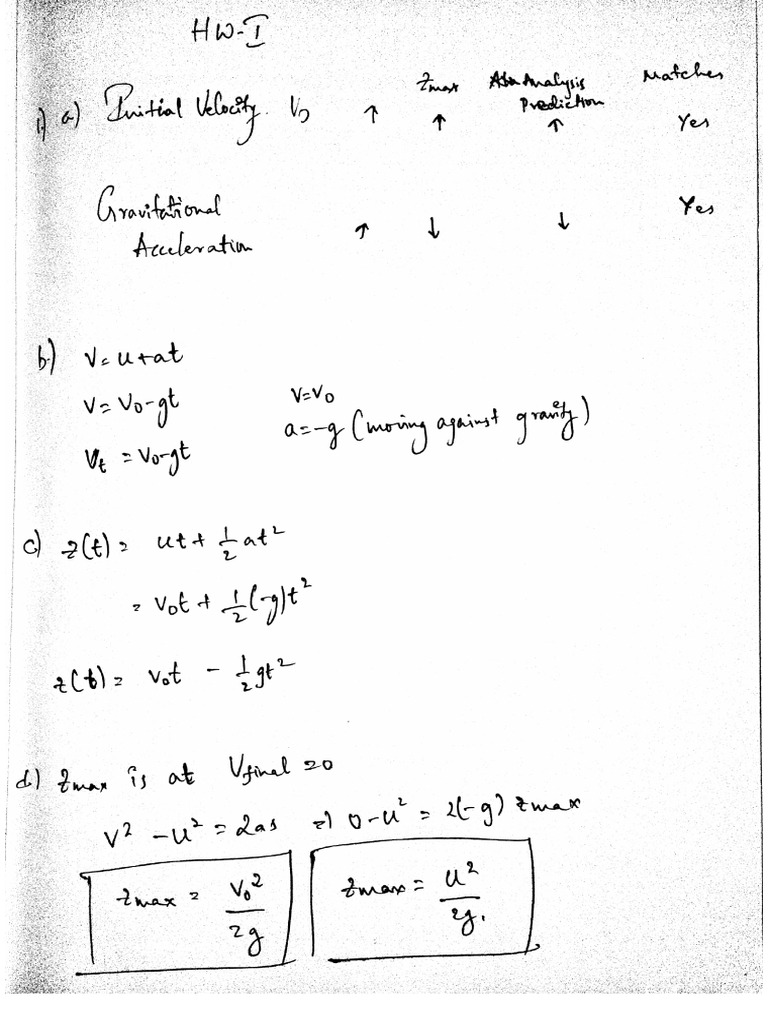 HW-I
Zmax Analysis Matches
Prediction
1) a) Initial Velocity V0 ↑ ↑ ↑ Yes
Gravitational Yes
Acceleration ↑ ↓ ↓
b) V=u+at
V=V0-gt V=V0
a=-g (moving against gravity)
Vt = V0-gt
c) z(t) = ut + 1/2 at²
= V0t + 1/2 (-g)t²
z(t) = V0t - 1/2 gt²
d) Zmax is at Vfinal =0
V² - u² = 2as => 0-u² = 2(-g) Zmax
Zmax = V0²/2g Zmax = u²/2g.